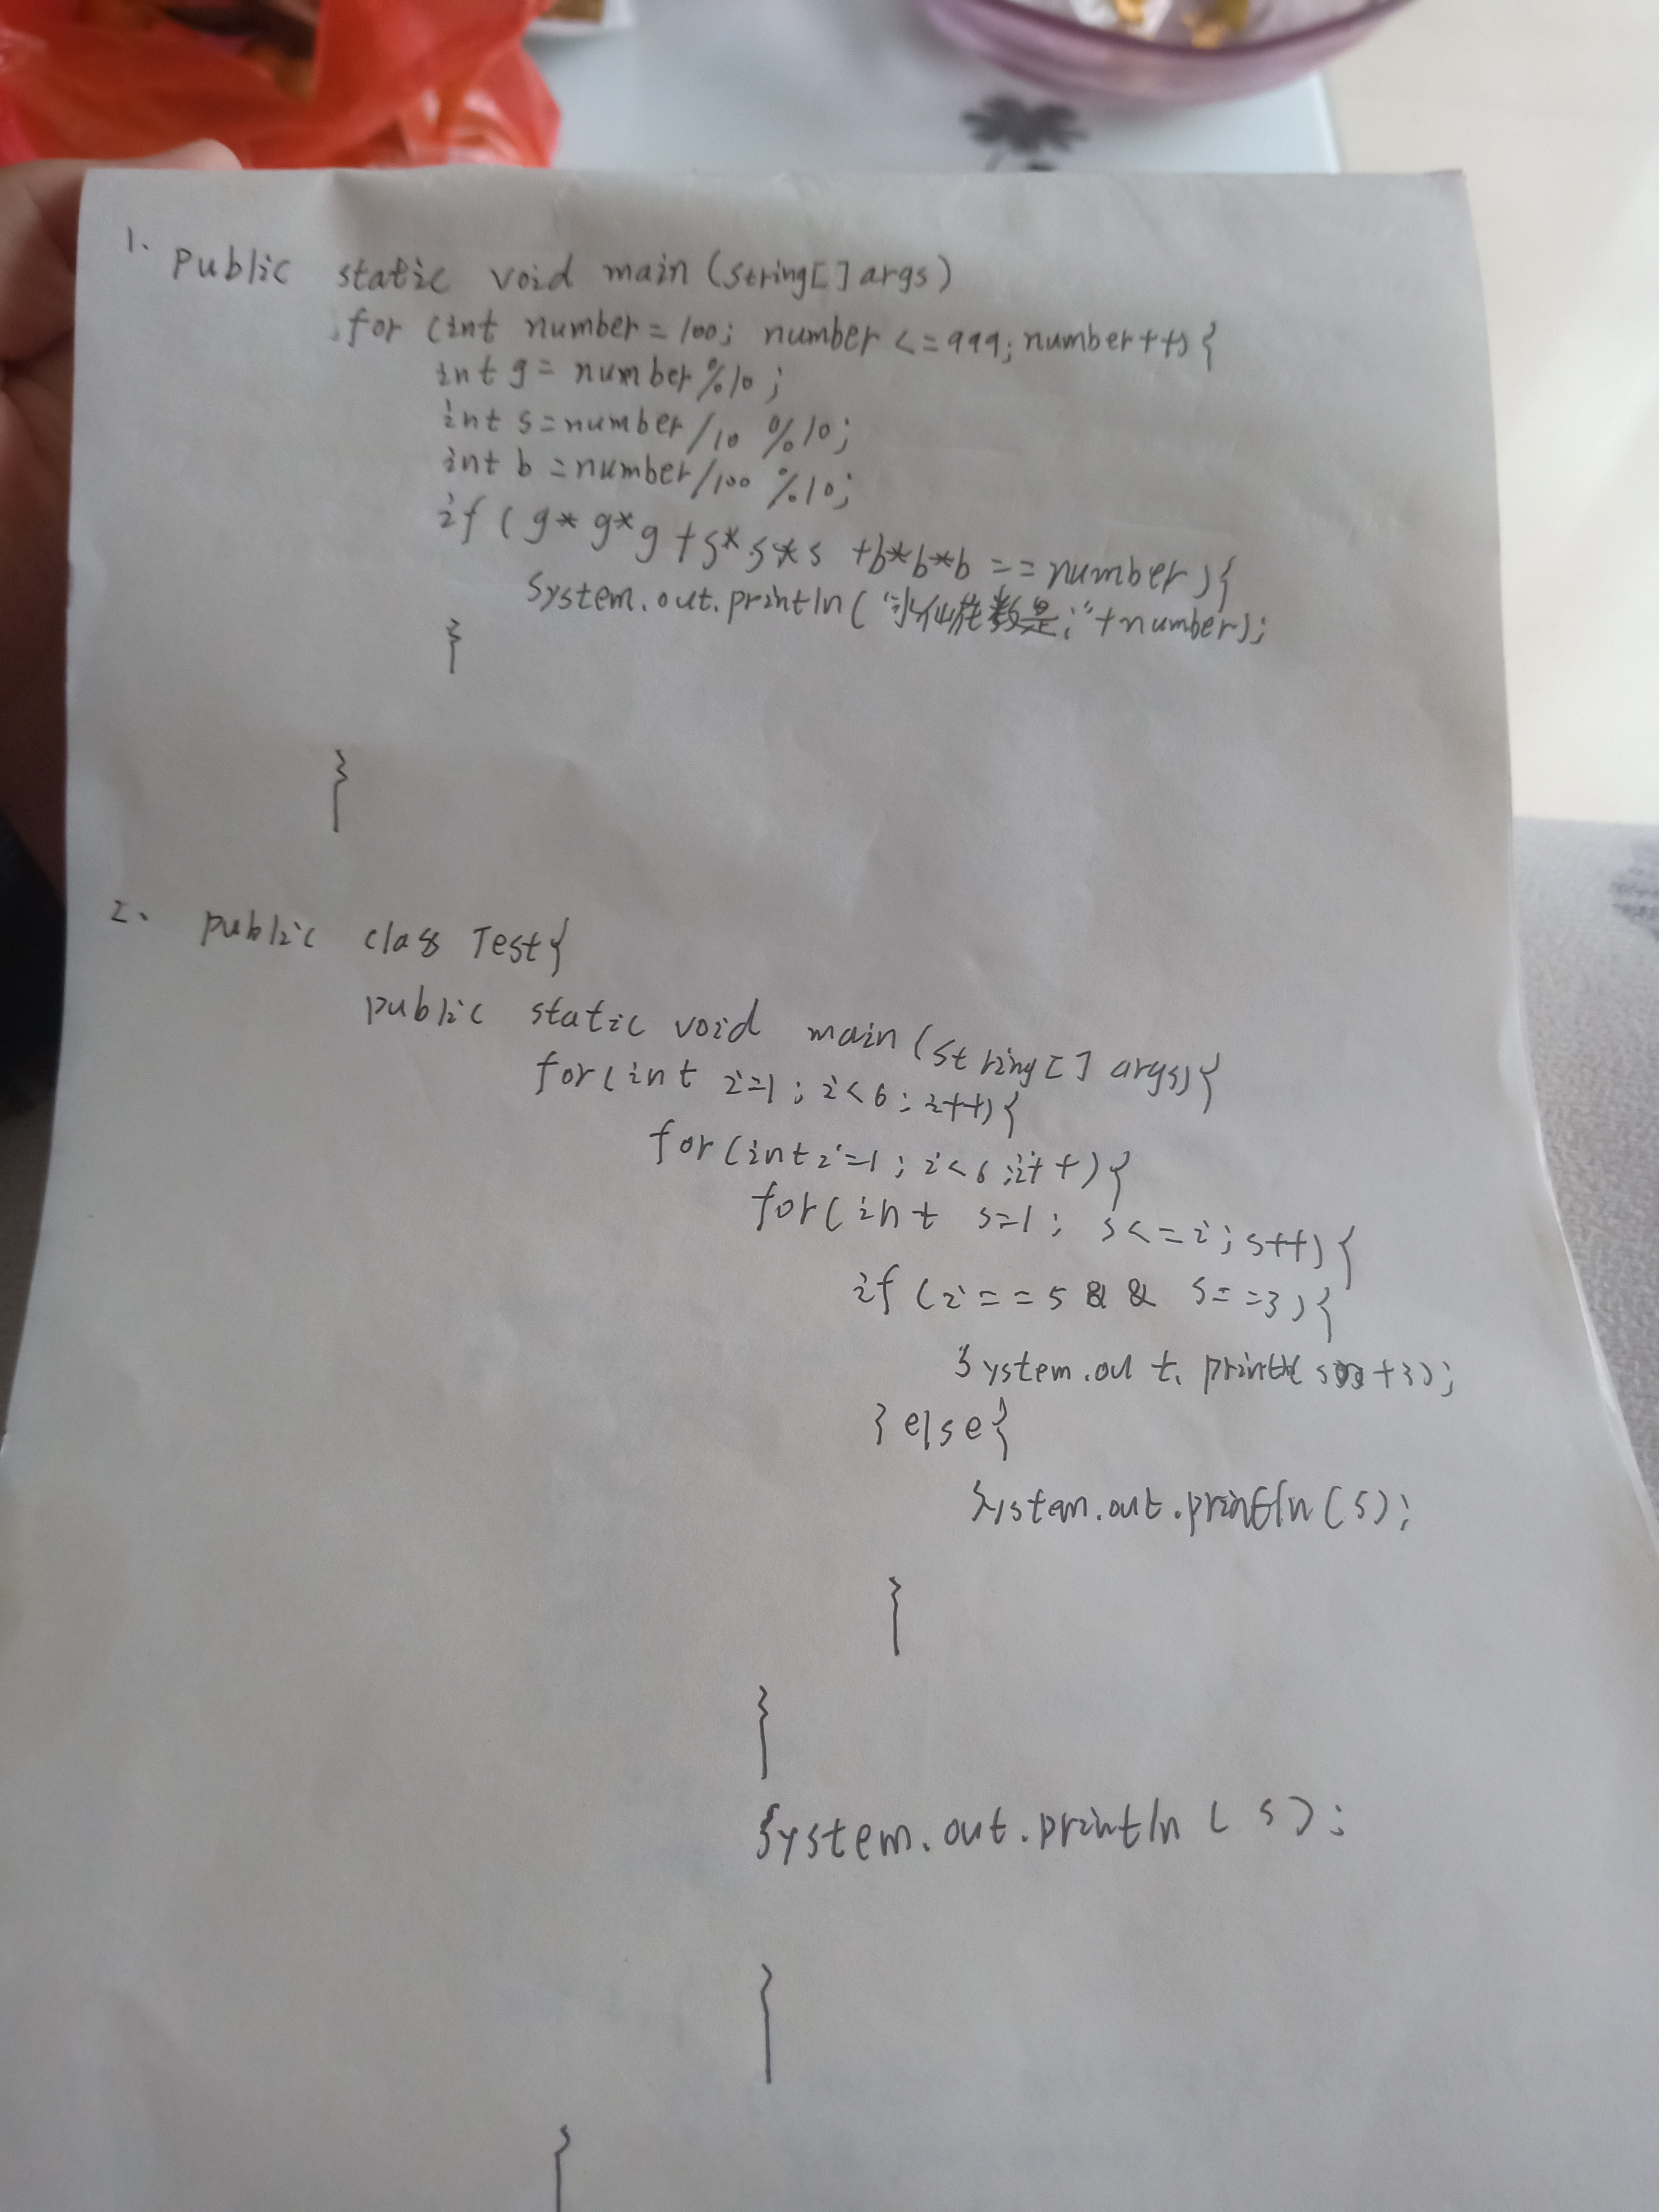 1、public static void main (string[] args)
for (int number = 100; number <= 999; number++){
int g = number %10;
int s = number/10 %10;
int b = number/100 %10;
if ( g* g*g + s* s*s +b*b*b == number){
System.out.println( "水仙花数是:"+number);
}
}
2、public class Test{
public static void main (string[] args){
for(int i=1; i<6; i++){
for(int i=1; i<6; i++){
for(int s=1; s<=i; s++){
if (i==5 && s==3){
System.out. +3);
} else{
System.out.println(s);
}
}
System.out.println( s);
}
}